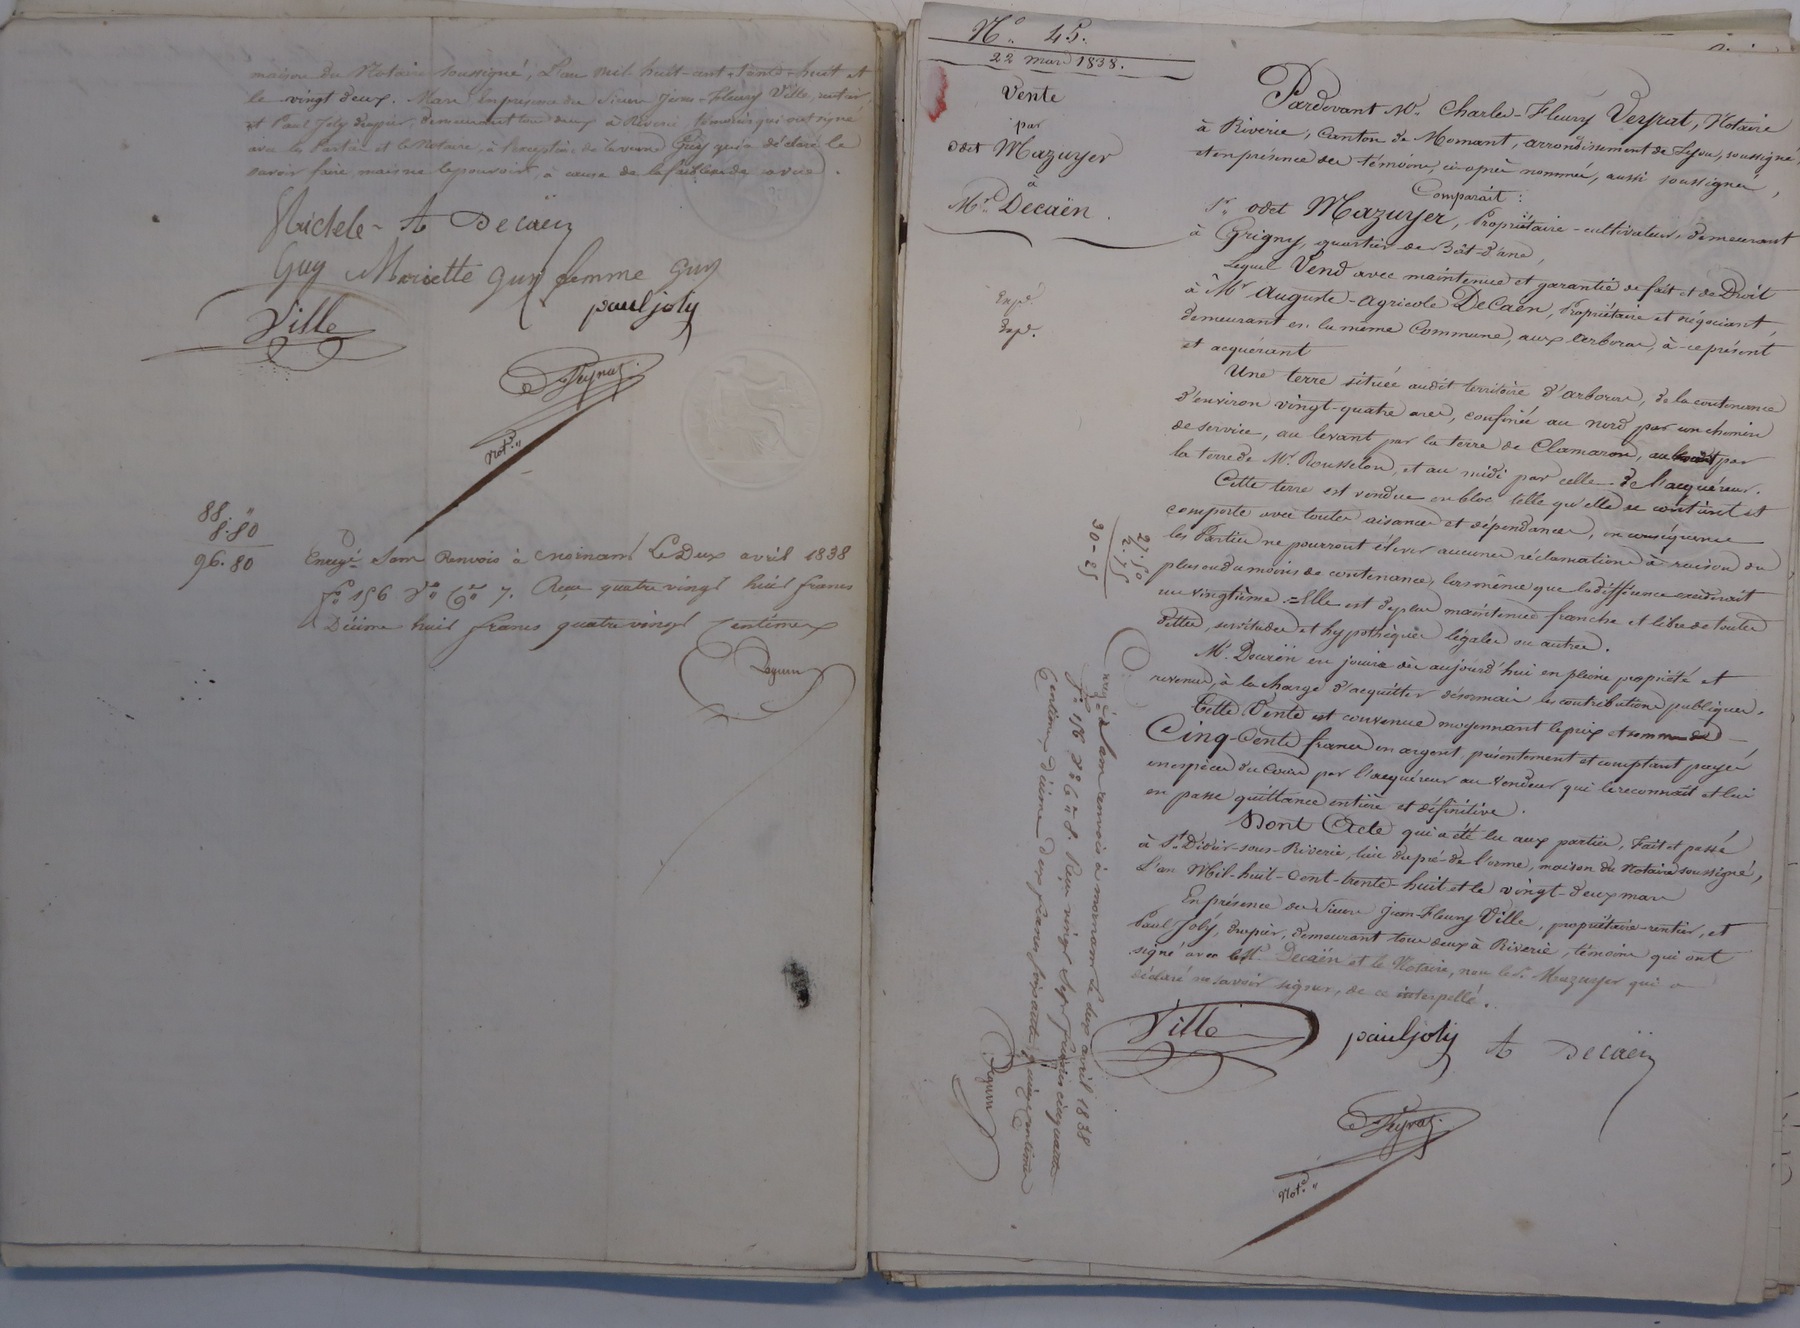 maison du Notaire soussigné, L'an mil huit-cent-trente-huit et
le vingt deux. Mars. En présence des Sieurs Jean-Fleury Ville, rentier,
et Paul Joly drapier, demeurant tous deux à Riverie, témoins qui ont signé
avec les Parties et le Notaire, à l'exception de la veuve Guy qui a déclaré le
savoir faire, mais ne le pouvoir, à cause de la faiblesse de sa vue.
A Decaën
Guy Mariette guy femme guy
Ville
paul joly
Veyrat.
Not.re
88. "
8. 80
96. 80
Enreg.é sans Renvois à mornant Le Deux avril 1838
f.o 156 v.o C.es 7. Reçu quatre vingt huit francs
Dixime huit francs quatre vingt centimes
N.o 45.
22 mars 1838.
Vente
par
odet Mazuyer
à
M.r Decaën.
Expé
Exp.
Pardevant M.e Charles-Fleury Veyrat, Notaire
à Riverie, Canton de Mornant, arrondissement de Lyon, soussigné,
et en présence des témoins, ci-après nommés, aussi soussignés,
Comparaît :
S.r odet Mazuyer, Propriétaire-cultivateur, demeurant
à Grigny, quartier de Bât-d'ane,
Lequel Vend avec maintenue et garantie de fait et de Droit
à M.r Auguste-Agricole Decaën, Propriétaire et négociant,
demeurant en la même Commune, aux arboras, à ce présent
et acquérant
Une terre située audit territoire d'arboras, de la contenance
d'environ vingt-quatre ares, confinée au nord par un chemin
de service, au levant par la terre de Clamaron, au par
la terre de M.r Rousselon, et au midi par celle de l'acquéreur.
Cette terre est vendue en bloc telle qu'elle se contient et
comporte avec toutes aisances et dépendances, en conséquence
les Parties ne pourront élever aucune réclamation à raison du
plus ou du moins de contenance, lors même que la différence excéderait
un vingtième. = Elle est de plus maintenue franche et libre de toutes
dettes, servitudes et hypothèques légales ou autres.
M. Decaën en jouira dès aujourd'hui en pleine propriété et
revenus, à la charge d'acquitter désormais les contributions publiques.
Cette Vente est convenue moyennant le prix et somme de
Cinq-Cents francs en argent, présentement et comptant payés
en espèces du Cours par l'acquéreur au Vendeur qui le reconnaît et lui
en passe quittance entière et définitive.
Dont Acte qui a été lu aux parties, Fait et passé
à S.t Didier-sous-Riverie, lieu du pré-de l'orme, maison du Notaire soussigné,
L'an Mil-huit-Cent-trente-huit et le vingt-deux mars
En présence des Sieurs Jean-Fleury Ville, propriétaire-rentier, et
Paul Joly, drapier, demeurant tous deux à Riverie, témoins qui ont
signé avec le S.r Decaën et le Notaire, non le S.r Mazuyer qui a
déclaré ne savoir signer, de ce interpellé.
Ville
paul joly
A Decaën
Veyrat.
Not.re
27. 50
2. 75
30-25
Enreg.é sans renvois à mornant Le deux avril 1838
f.o 156 v.o C.es 8. Reçu vingt Sept francs cinquante
Centimes, dixime deux francs soixante quinze Centimes